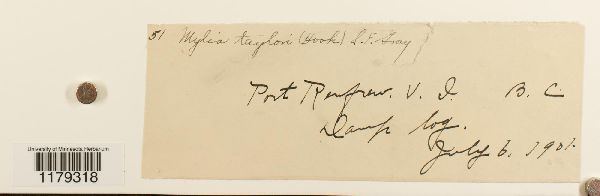 51 Mylia taylori (Hook) S. F. Gray
Port Renfrew. V. I. B. C.
Damp log.
July 6. 1901.
University of Minnesota Herbarium
1179318